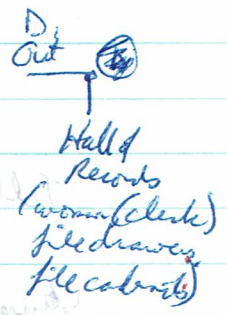 D,
Out
Hall of
Records
(woman (clerk)
file drawers,
file cabinets)